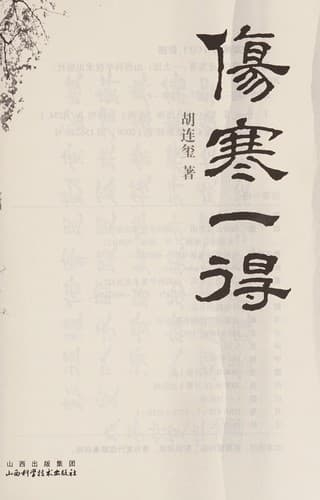 傷寒一得
胡连玺 著
山西出版集团
山西科学技术出版社